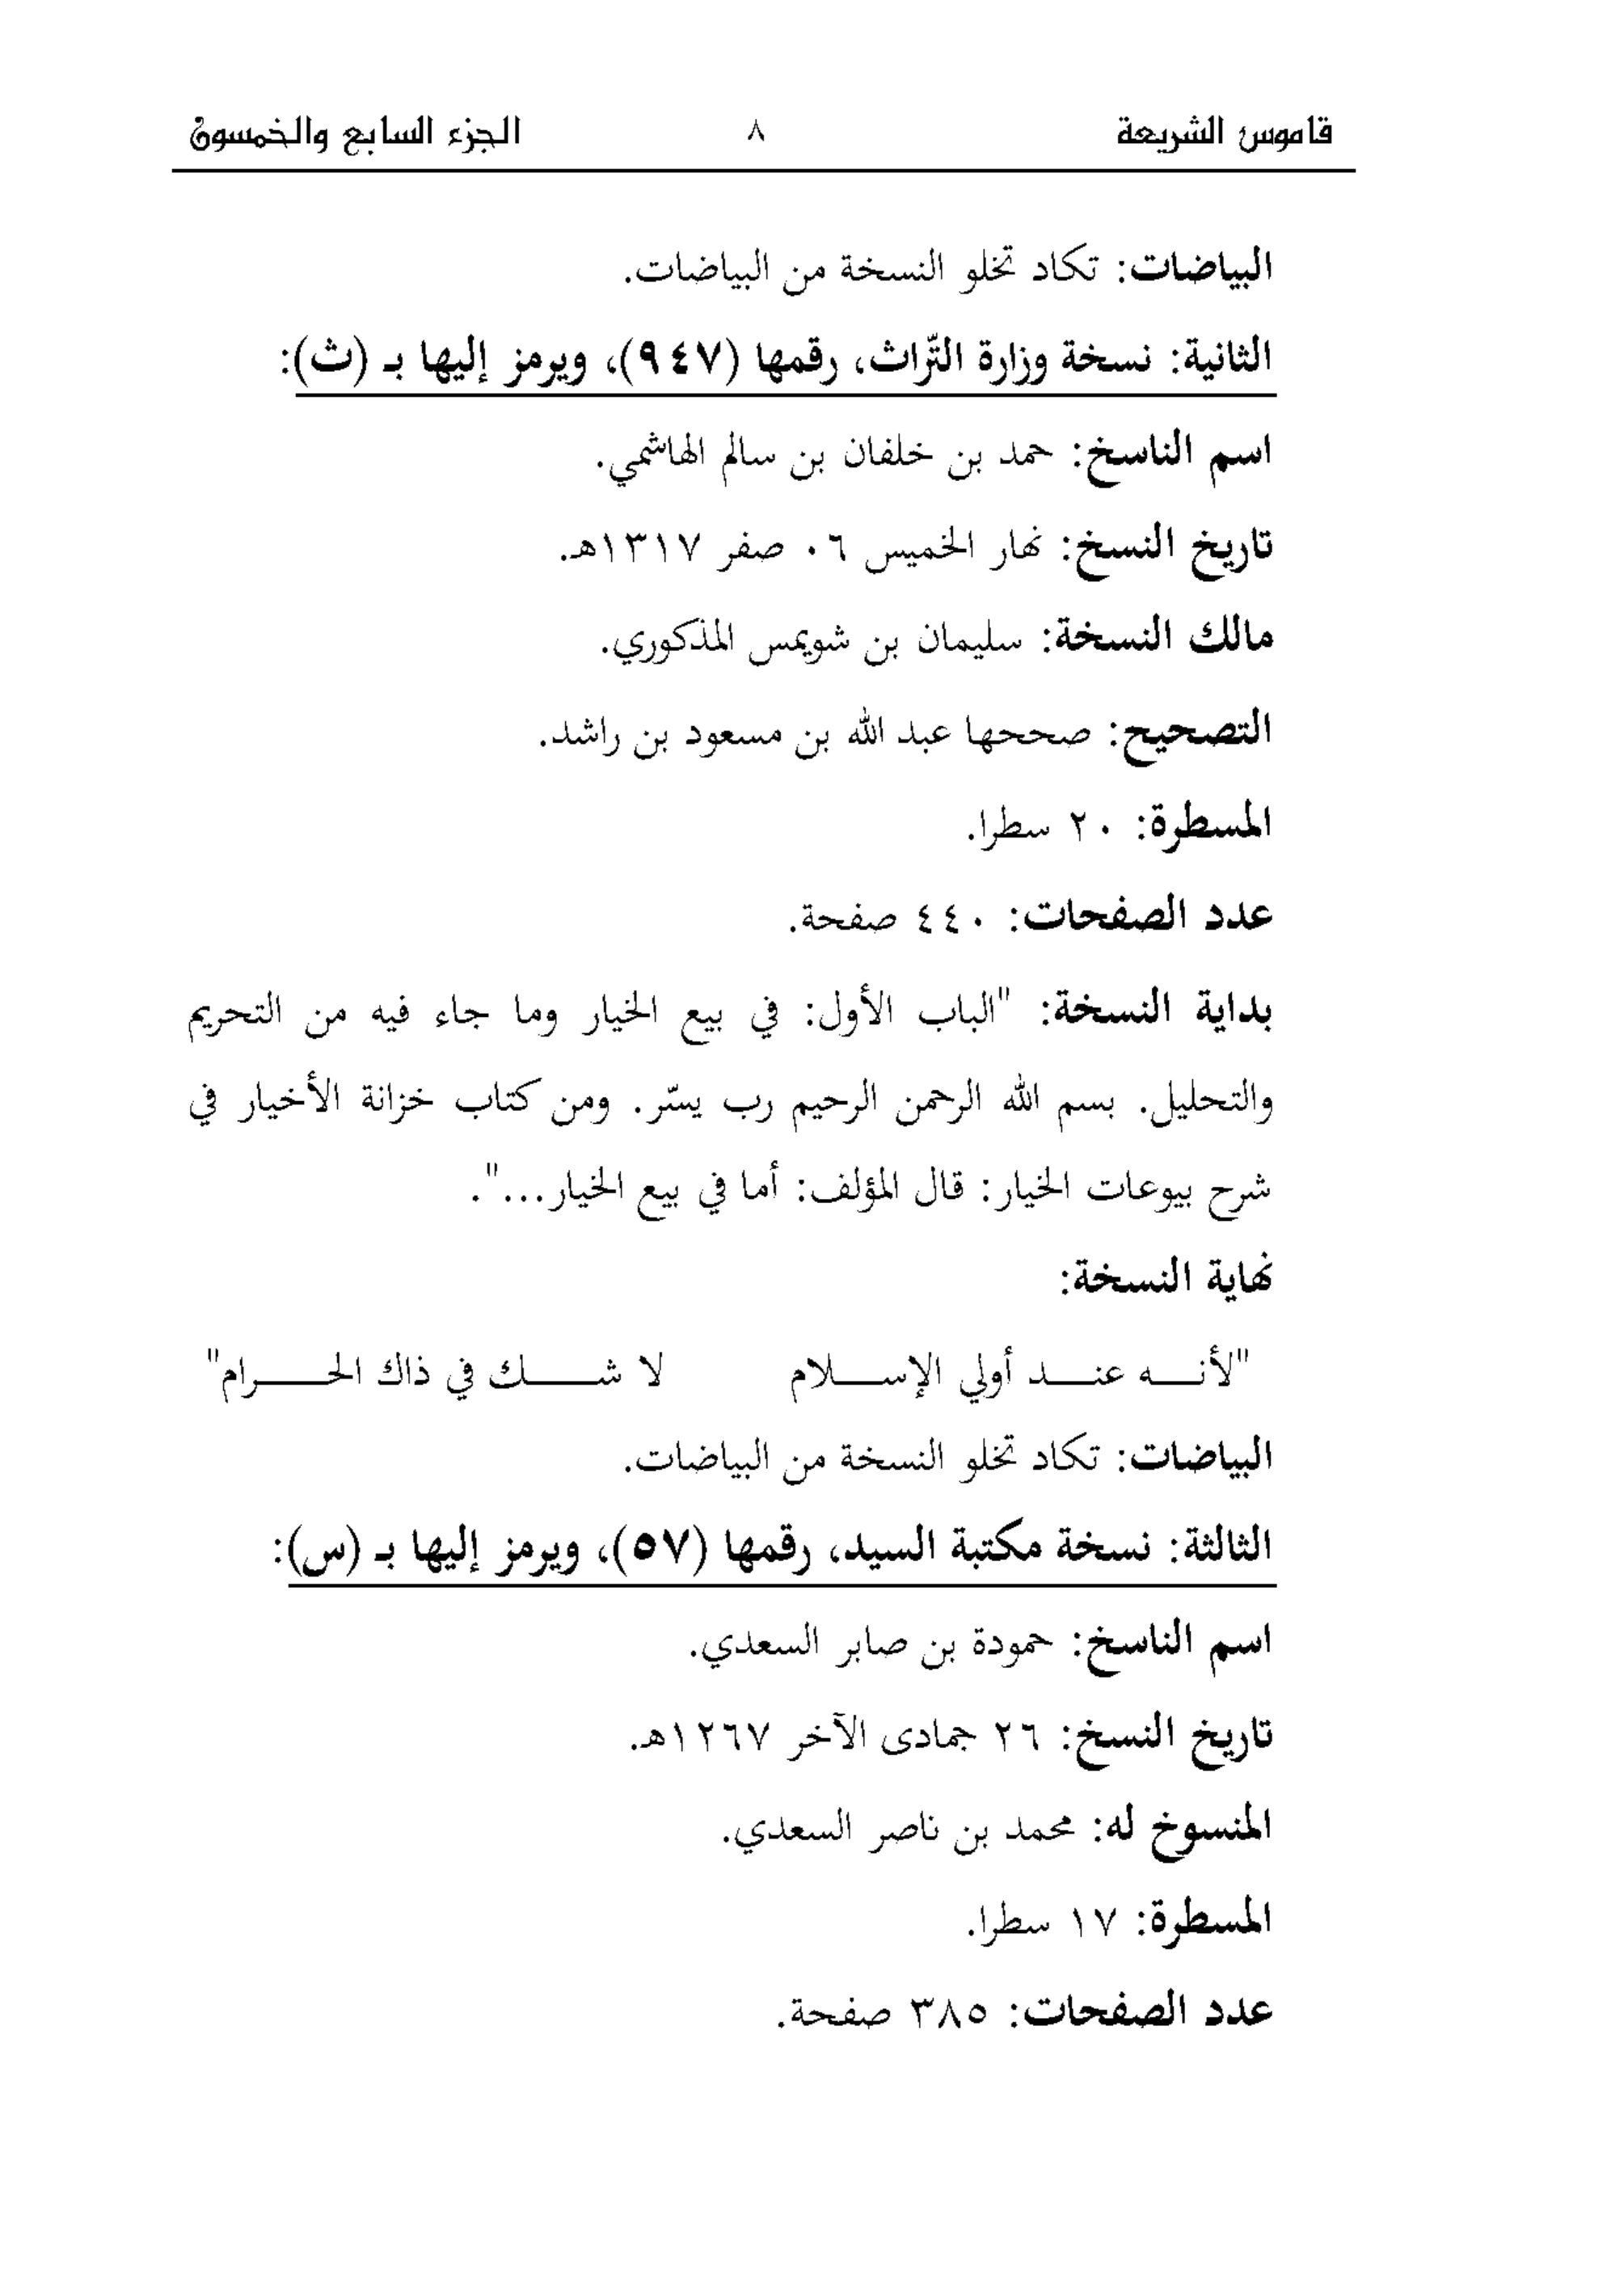 قاموس الشريعة ٨ الجزء السابع والخمسون
البياضات: تكاد تخلو النسخة من البياضات.
الثانية: نسخة وزارة التّراث، رقمها (٩٤٧)، ويرمز إليها بـ (ث):
اسم الناسخ: حمد بن خلفان بن سالم الهاشمي.
تاريخ النسخ: نهار الخميس ٠٦ صفر ١٣١٧هـ.
مالك النسخة: سليمان بن شويمس المذكوري.
التصحيح: صححها عبد الله بن مسعود بن راشد.
المسطرة: ٢٠ سطرا.
عدد الصفحات: ٤٤٠ صفحة.
بداية النسخة: "الباب الأول: في بيع الخيار وما جاء فيه من التحريم
والتحليل. بسم الله الرحمن الرحيم رب يسّر. ومن كتاب خزانة الأخيار في
شرح بيوعات الخيار: قال المؤلف: أما في بيع الخيار...".
نهاية النسخة:
"لأنــه عنــد أولي الإســلام لا شــك في ذاك الحــرام"
البياضات: تكاد تخلو النسخة من البياضات.
الثالثة: نسخة مكتبة السيد، رقمها (٥٧)، ويرمز إليها بـ (س):
اسم الناسخ: حمودة بن صابر السعدي.
تاريخ النسخ: ٢٦ جمادى الآخر ١٢٦٧هـ.
المنسوخ له: محمد بن ناصر السعدي.
المسطرة: ١٧ سطرا.
عدد الصفحات: ٣٨٥ صفحة.